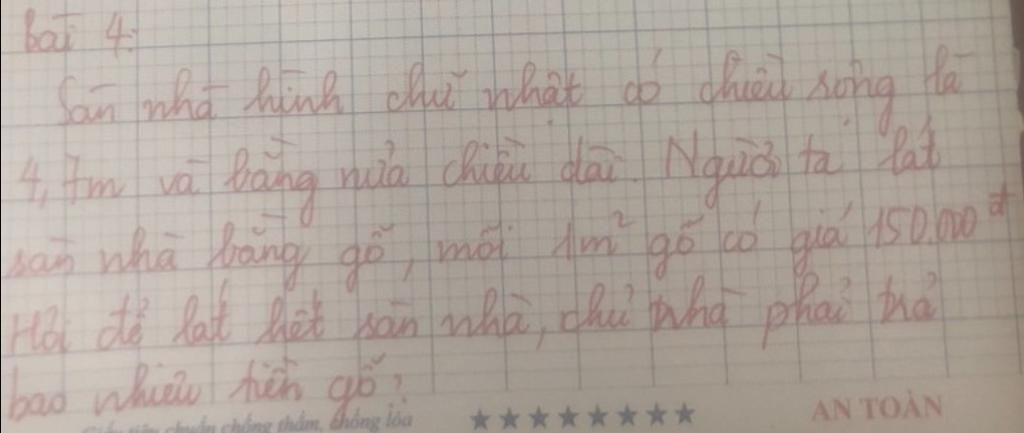 Bài 4:
Sàn nhà hình chữ nhật có chiều rộng là
4,7m và bằng nửa chiều dài. Người ta lát
sàn nhà bằng gỗ, mỗi 1m² gỗ có giá 150.000đ
Hỏi để lát hết sàn nhà, chủ nhà phải trả
bao nhiêu tiền gỗ?
chống thấm, chống lóa
★★★★★★★★ AN TOÀN